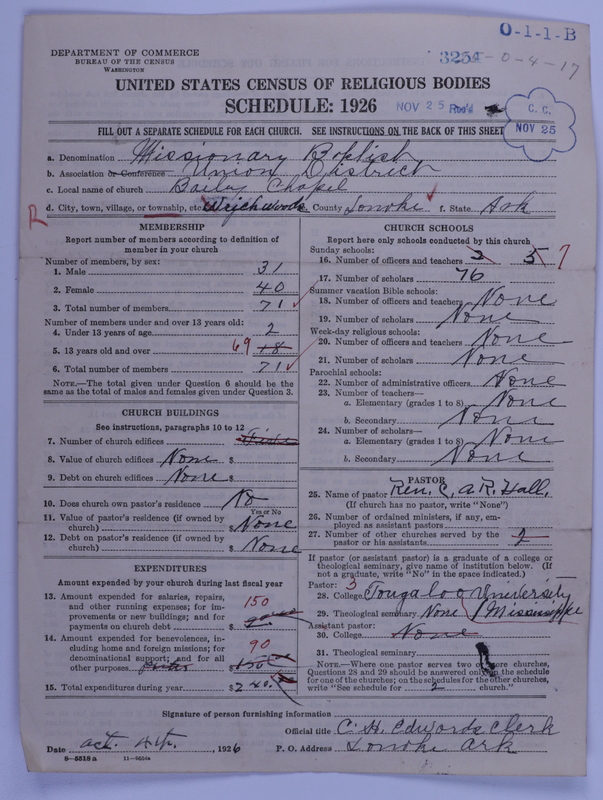 O-1-1-B
DEPARTMENT OF COMMERCE
BUREAU OF THE CENSUS
WASHINGTON
3251-0-4-17
UNITED STATES CENSUS OF RELIGIOUS BODIES
SCHEDULE: 1926
NOV 25 Rec'd
C. C.
NOV 25
FILL OUT A SEPARATE SCHEDULE FOR EACH CHURCH. SEE INSTRUCTIONS ON THE BACK OF THIS SHEET
a. Denomination Missionary Baptist
b. Association or Conference Union District
c. Local name of church Baily Chapel
R
d. City, town, village, or township, etc. County Lonoke f. State Ark
MEMBERSHIP
Report number of members according to definition of
member in your church
Number of members, by sex:
1. Male 31
2. Female 40
3. Total number of members 71
Number of members under and over 13 years old:
4. Under 13 years of age 2
5. 13 years old and over 69 18
6. Total number of members 71
NOTE.—The total given under Question 6 should be
the same as the total of males and females given under Question 3.
CHURCH BUILDINGS
See instructions, paragraphs 10 to 12
7. Number of church edifices
8. Value of church edifices None $
9. Debt on church edifices None $
10. Does church own pastor's residence No
Yes or No
11. Value of pastor's residence (if owned by
church) $ None
12. Debt on pastor's residence (if owned by
church) $ None
EXPENDITURES
Amount expended by your church during last fiscal year
13. Amount expended for salaries, repairs,
and other running expenses; for im-
provements or new buildings; and for
payments on church debt $ 150
14. Amount expended for benevolences, in-
cluding home and foreign missions; for
denominational support; and for all
other purposes $ 90 150
15. Total expenditures during year $ 240
CHURCH SCHOOLS
Report here only schools conducted by this church
Sunday schools:
16. Number of officers and teachers 2 5 7
17. Number of scholars 76
Summer vacation Bible schools:
18. Number of officers and teachers None
19. Number of scholars None
Week-day religious schools:
20. Number of officers and teachers None
21. Number of scholars None
Parochial schools:
22. Number of administrative officers None
23. Number of teachers—
a. Elementary (grades 1 to 8) None
b. Secondary None
24. Number of scholars—
a. Elementary (grades 1 to 8) None
b. Secondary None
PASTOR
25. Name of pastor Rev. C. A. R. Hall.
(If church has no pastor, write "None")
26. Number of ordained ministers, if any, em-
ployed as assistant pastors
27. Number of other churches served by the
pastor or his assistants 2
If pastor (or assistant pastor) is a graduate of a college or
theological seminary, give name of institution below. (If
not a graduate, write "No" in the space indicated.)
Pastor: 3
28. College Tougaloo University
29. Theological seminary None Mississippe
Assistant pastor:
30. College None
31. Theological seminary
NOTE.—Where one pastor serves two or more churches,
Questions 28 and 29 should be answered only on the schedule
for one of the churches; on the schedules for the other churches,
write "See schedule for 2 church."
Signature of person furnishing information
Official title C. H. Edwards Clerk
Date Oct. , 1926 P. O. Address Lonoke Ark
8-5518 a 11-9554a